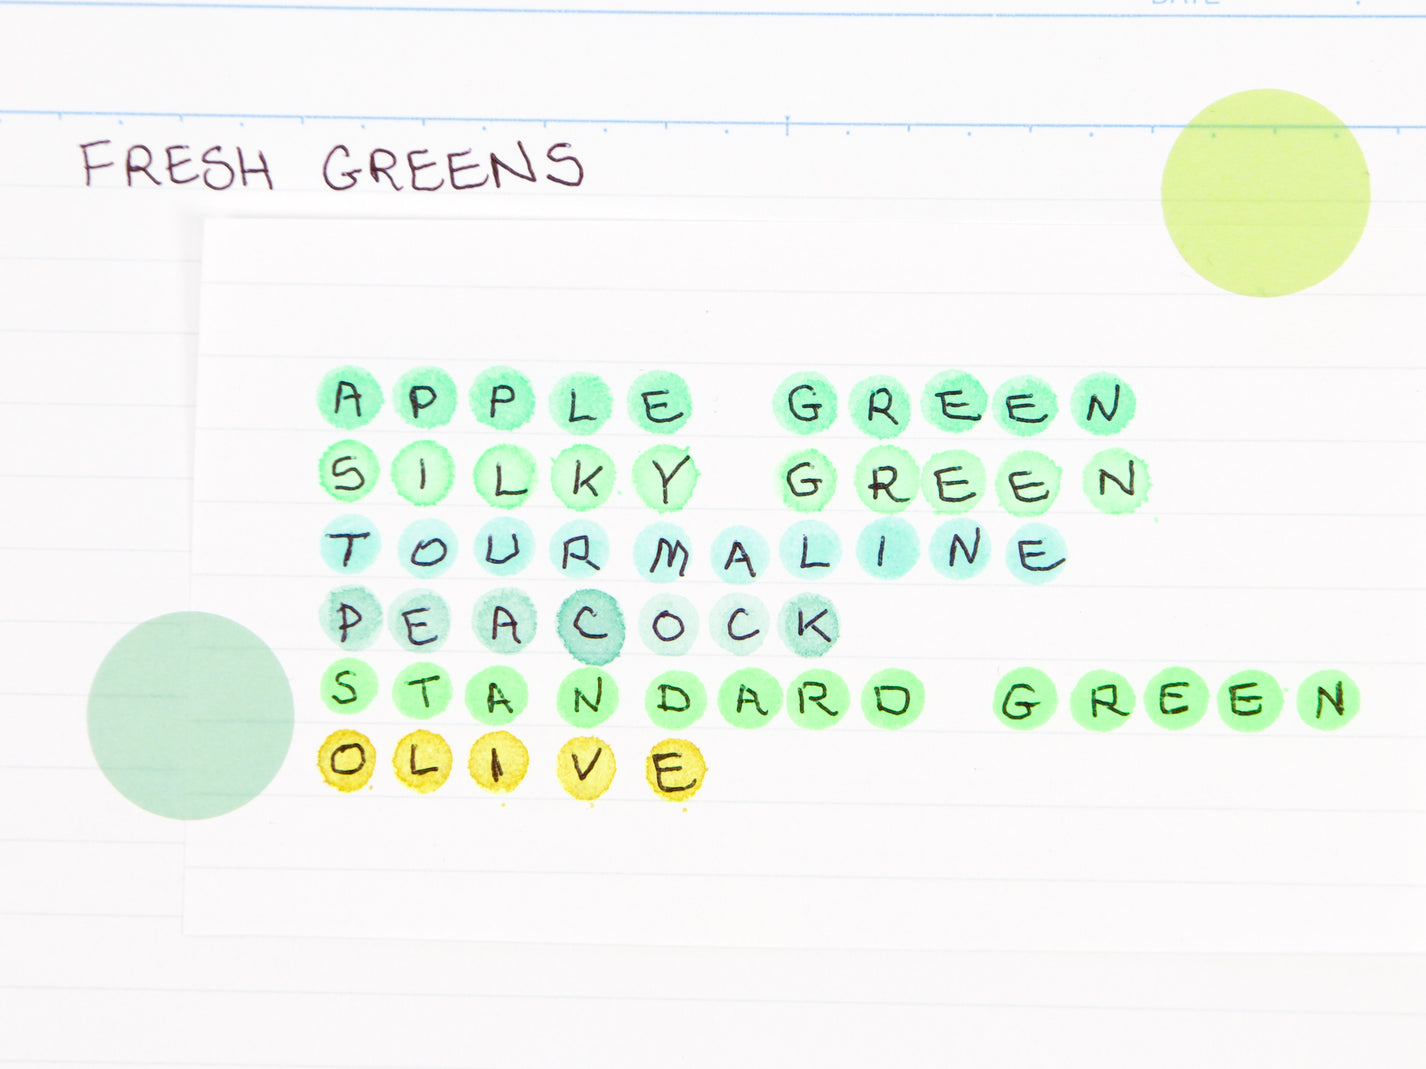 DATE
FRESH GREENS
APPLE GREEN
SILKY GREEN
TOURMALINE
PEACOCK
STANDARD GREEN
OLIVE